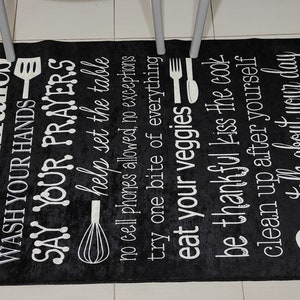 WASH YOUR HANDS
SAY YOUR PRAYERS
help set the table
no cell phones allowed no exceptions
try one bite of everything
eat your veggies
be thankful kiss the cook
clean up after yourself
about your day